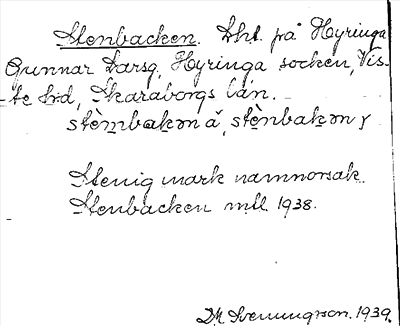 Stenbacken. Lht. på Hyringa
Gunnar Larsg, Hyringa socken, Vis-
te hd, Skaraborgs län.
stèmbakən ä, stènbakən y
Stenig mark namnorsak.
Stenbacken mtl 1938.
M Svenungson. 1939.